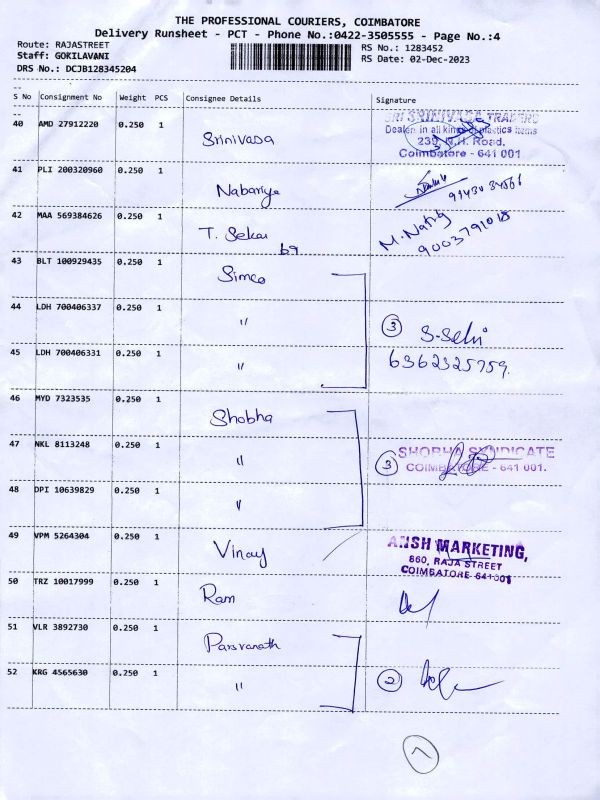 THE PROFESSIONAL COURIERS, COIMBATORE
Delivery Runsheet - PCT - Phone No.:0422-3505555 - Page No.:4
Route: RAJASTREET
Staff: GOKILAVANI
DRS No.: DCJB128345204
RS No.: 1283452
RS Date: 02-Dec-2023
S No Consignment No Weight PCS Consignee Details Signature
40 AMD 27912220 0.250 1 Srinivasa
SRI SRINIVASA TRADERS
Dealer in all kinds of plastics items
239, N.H. Road,
Coimbatore - 641 001
41 PLI 200320960 0.250 1 Nabariya
42 MAA 569384626 0.250 1 T. Sekar
69
9003791018
43 BLT 100929435 0.250 1 Simco
44 LDH 700406337 0.250 1 "
3 S-Selvi
45 LDH 700406331 0.250 1 "
6362325759.
46 MYD 7323535 0.250 1 Shobha
47 NKL 8113248 0.250 1 "
3 SHOBHA SYNDICATE
COIMBATORE - 641 001.
48 DPI 10639829 0.250 1 "
49 VPM 5264304 0.250 1 Vinay
ANSH MARKETING,
860, RAJA STREET
COIMBATORE-641001
50 TRZ 10017999 0.250 1 Ram
51 VLR 3892730 0.250 1 Parsvanath
52 KRG 4565630 0.250 1 "
2